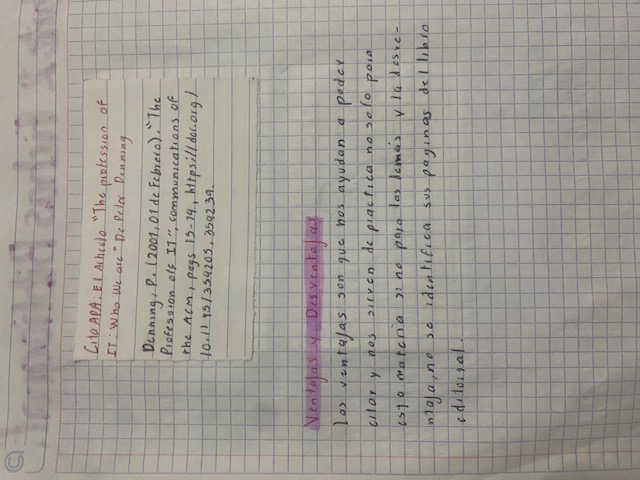 Cita APA: El Artículo "The profession of
IT: Who We are" De Peter Denning
Denning, P. (2001, 01 de Febrero). "The
Profession ofs IT", communications of
the ACM, pags 15-19, https://doi.org/
10.1145/359205.359239.
Ventajas y Desventajas
Las ventajas son que nos ayudan a poder
citar y nos sirven de practica no solo para
esta materia si no para las demás y la desve-
ntaja, no se identifica sus paginas del libro
editoisal.